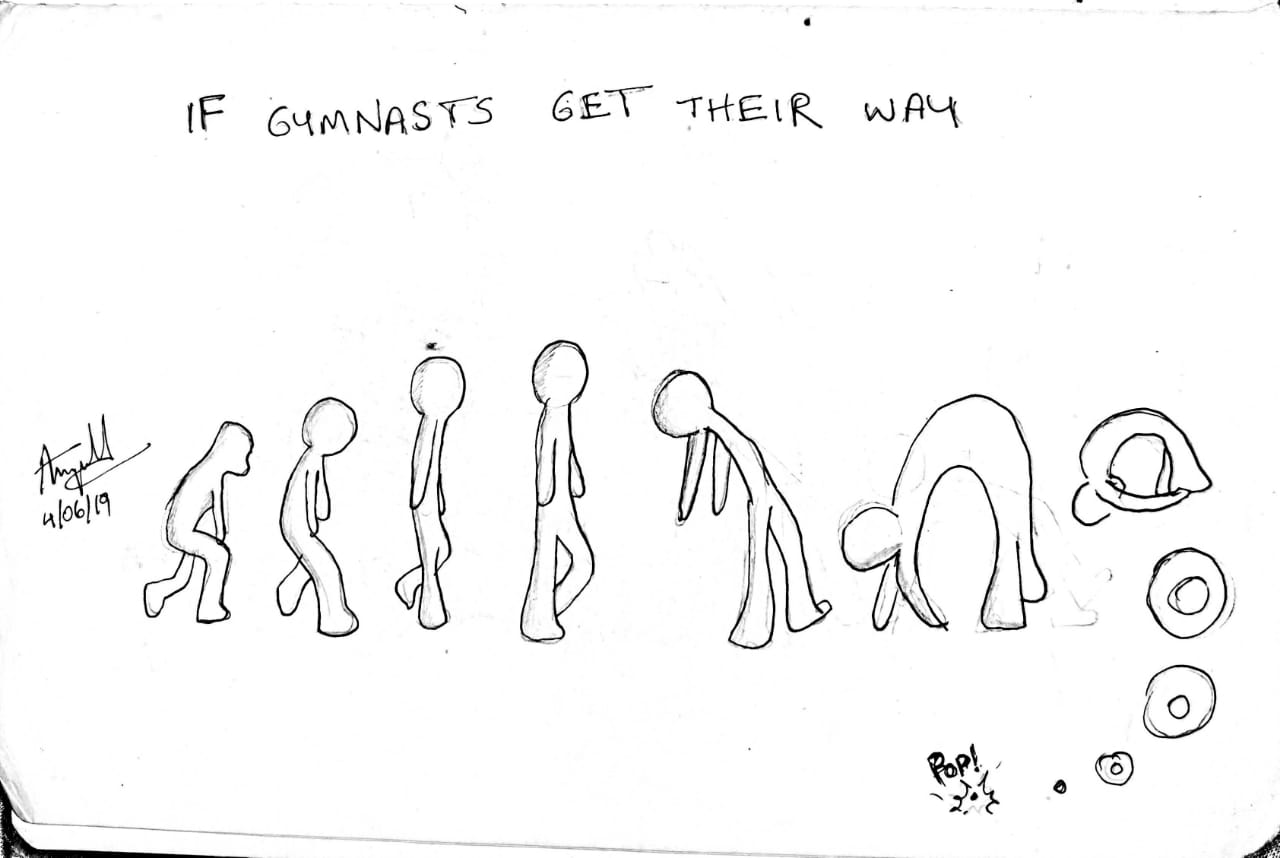 IF GYMNASTS GET THEIR WAY
4/06/19
POP!